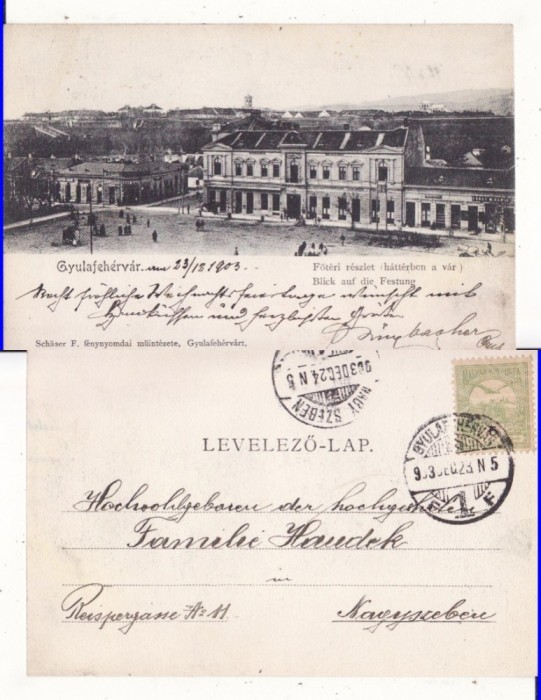 Gyulafehérvár. am 23/12 1903.
Főtéri részlet (háttérben a vár)
Blick auf die Festung
Recht fröhliche Weihnachtsfeiertage wünscht mit
Handküssen und herzlichsten Grüßen
Schäser F. fénynyomdai műintézete, Gyulafehérvárt.
NAGY SZEBEN
903 DEC. 24 N 5
LEVELEZŐ-LAP.
GYULAFEHÉRVÁR
903 DEC. 23 N 5
Hochwohlgeboren der
Familie Haudek
in
Reispergasse No 11
Nagyszeben